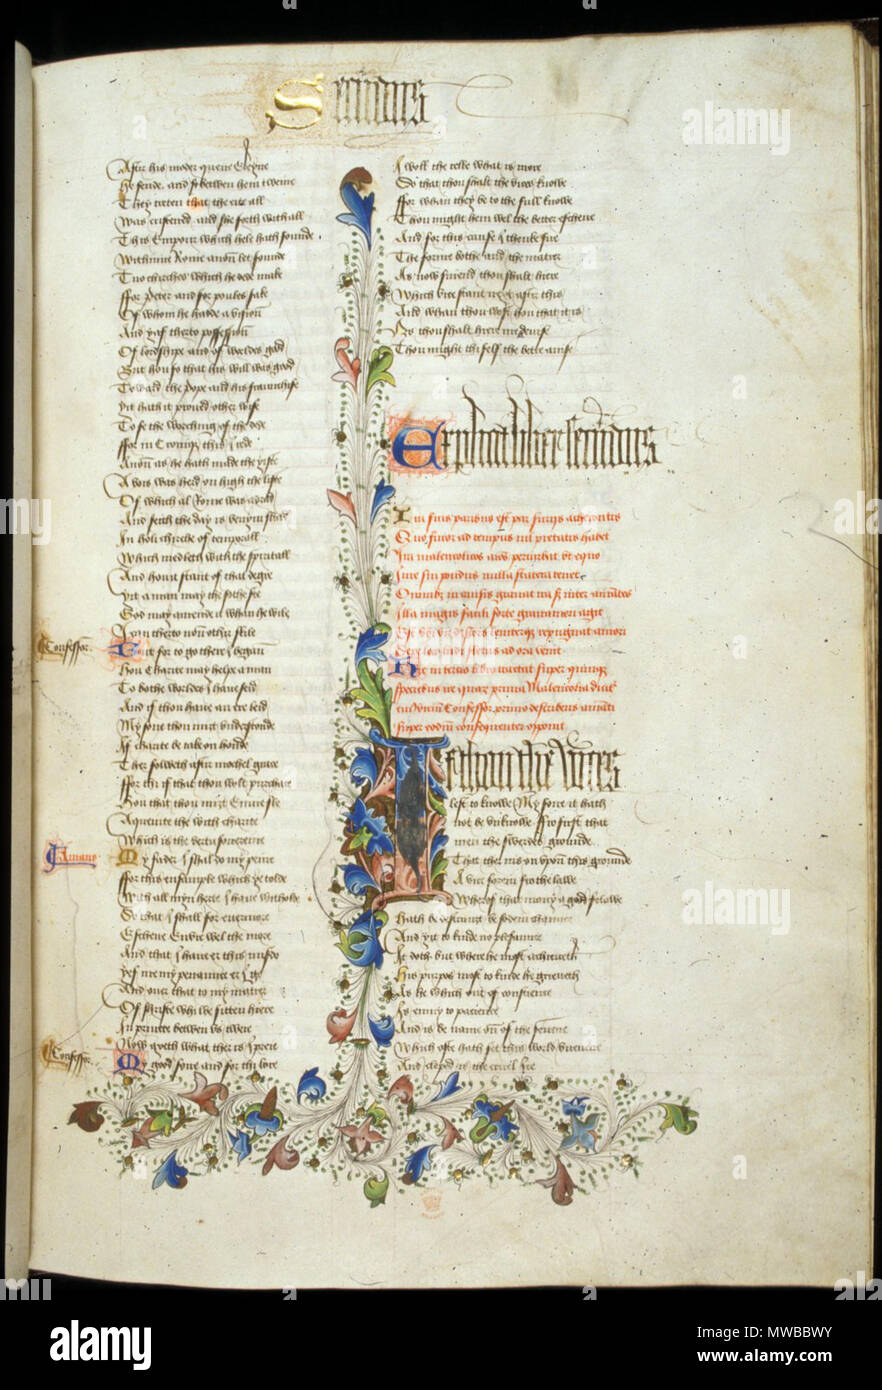 Secundus
After his moder quene Eleyne
He sende and so betwen hem tweine
They treten that the cite all
Was cristened and she forth with all
This Emperour which hele hath founde
Withinne Rome anon let founde
Two chirches which he dede make
ffor Peter and for poules sake
Of whom he hadde a vision
And yaf therto possession
Of lordshipe and of worldes good
But hou so that his will was good
Toward the Pope and his franchise
yit hath it proved other wise
To se the worching of the dede
ffor in Cronique this I rede
Anon as he hath made the yifte
A vois was herd on high the lifte
Of which al Rome was adrad
And seith the day is venym shad
In holi chirche of temporall
Which medleth with the spirituall
And hou it stant of that degre
yit a man may the sothe se
God may amende it whan he wile
I can therto non other skile
Confessor
But for to go ther I began
Hou Charite may helpe a man
To bothe worldes I have seid
And if thou have an ere leid
My sone thou miht understonde
If charite be take on honde
Ther folweth after mochel grace
ffor thi if that thou wylt purchace
Hou that thou miht Envie fle
Aqueinte the with charite
Which is the vertu sovereine
Amans
My fader I shal do my peine
ffor this ensample which ye tolde
With all myn herte I have witholde
So that I shall for evermore
Eschene Envie wel the more
And that I have er this misdo
yef me my penaunce er I go
And over that to my matere
Of shrifte whi we sitten hiere
In privete betwen us tweie
Now axeth what ther is I preie
Confessor
My good sone and for thi lore
I woll the telle what is more
So that thou shalt the vices knowe
ffor whan they be to the full knowe
Thou might hem wel the better eschene
And for this cause I thenke sue
The forme bothe and the matere
As now suiend thou shalt hiere
Which vice stant next after this
And whan thou wost hou that it is
As thou shalt hiere me devise
Thou might thi self the betre avise
Explicit liber secundus
Ira suis paribus est par furiis acherontis
Quo furor ad tempus nil pietatis habet
Ira malencolicos animos perturbat ut equo
Iure sui pondus nulla statera tenet
Omnibus in causis grauat ira set inter amantes
Illa magis facili sorte grauamen agit
Hic in tercio libro tractat super quinque
speciebus ire quarum prima Malencolia dicitur
cuius vicium Confessor primo describens amanti
super eodem consequenter opponit
If thou the vices
lest to knowe My sone it hath
not be unknowe ffro first that
men the swerdes grounde
That ther nis on upon this grounde
A vice forein fro the lawe
Wherof that many a good felawe
Hath be destrauht be sodein chaunce
And yit to kinde no plesaunce
It doth but wher he most achieveth
His purpos most to kinde he grieveth
As he which out of conscience
Is enemy to pacience
And is be name on of the sevene
Which ofte hath set this world unevene
And cleped is the cruel Ire
alamy
Image ID: MWBBWY
www.alamy.com